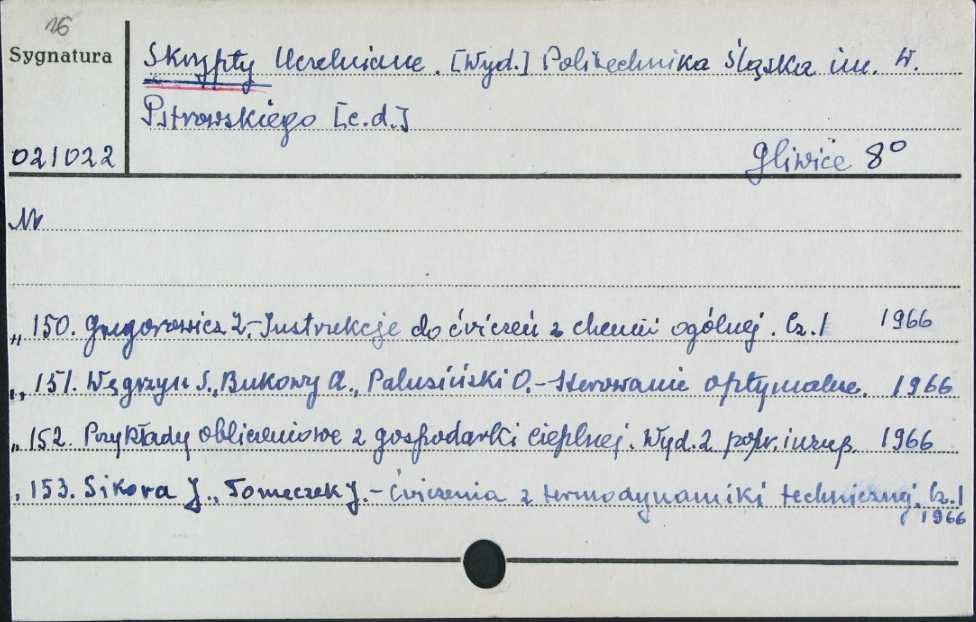 16
Sygnatura
Skrypty Uczelniane. [Wyd.] Politechnika Śląska im. W.
Pstrowskiego [c.d.]
021022
Gliwice 8°
Nr
„ 150. Gregorowicz Z.-Instrukcje do ćwiczeń z chemii ogólnej. Cz. 1 1966
„ 151. Węgrzyn S., Bukowy A., Palusiński O.-Sterowanie optymalne. 1966
„ 152. Przykłady obliczeniowe z gospodarki cieplnej. Wyd. 2 popr. i uzup. 1966
„ 153. Sikora J., Tomeczek J.-Ćwiczenia z termodynamiki technicznej. Cz. 1
1966